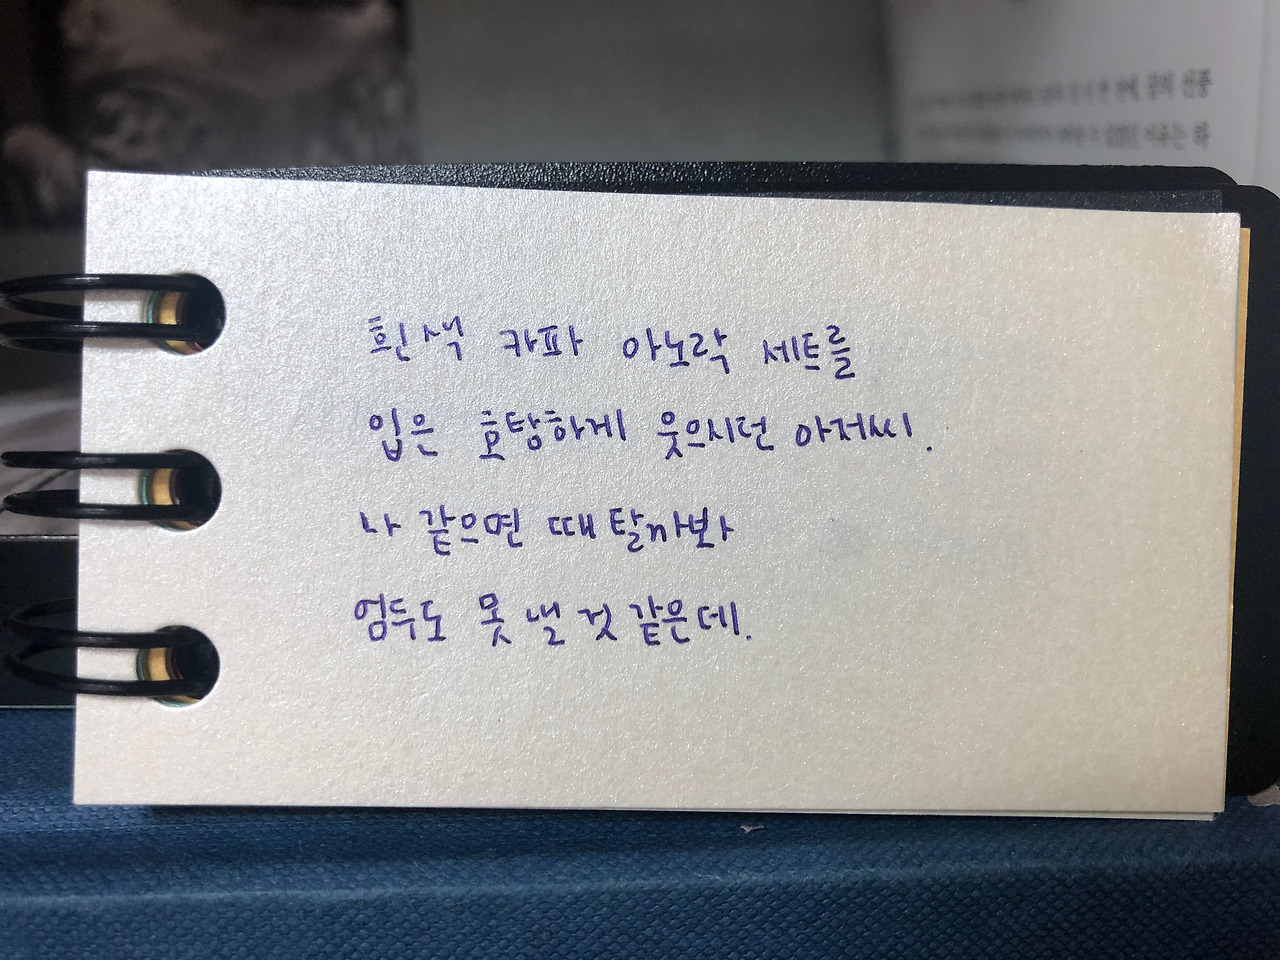 흰색 카파 아노락 세트를
입은 호탕하게 웃으시던 아저씨.
나 같으면 때 탈까봐
엄두도 못 낼 것 같은데.